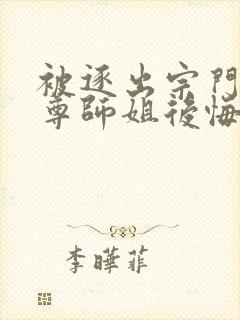 被逐出宗門
尊師姐後悔
李曄菲